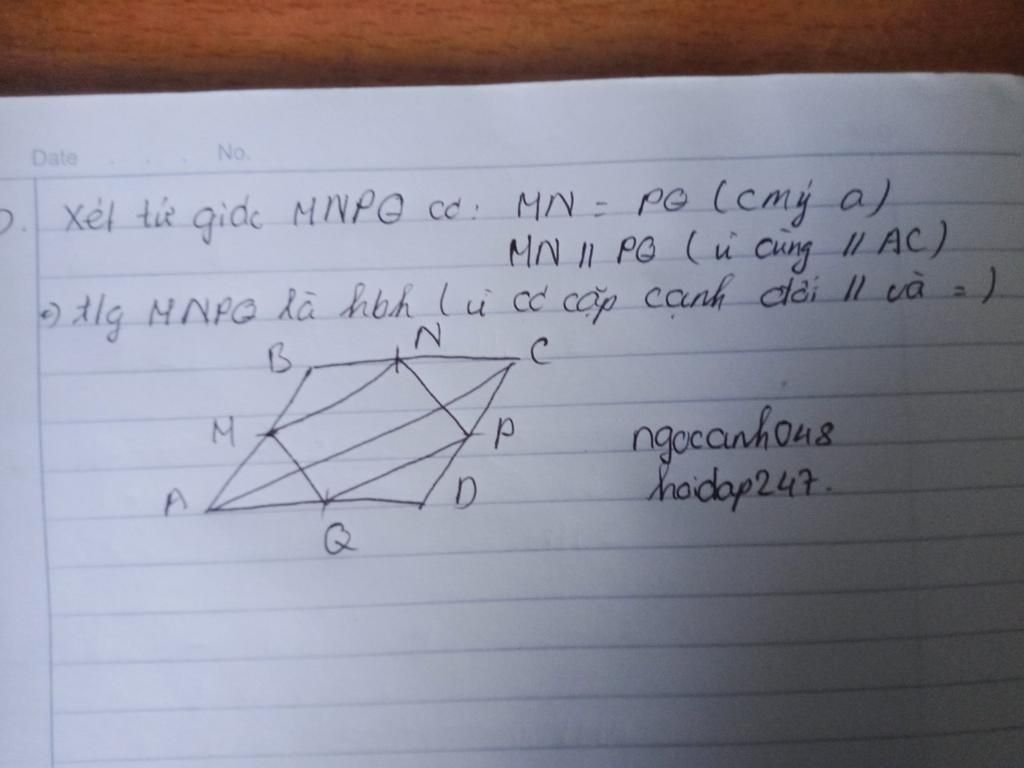 Date . . . No.
Xét tứ giác MNPQ có: MN = PQ (cmý a)
MN // PQ (vì cùng // AC)
=) t/g MNPQ là hbh (vì có cặp cạnh đối // và =)
B N C
M P
A Q D
ngocanh048
hoidap247.